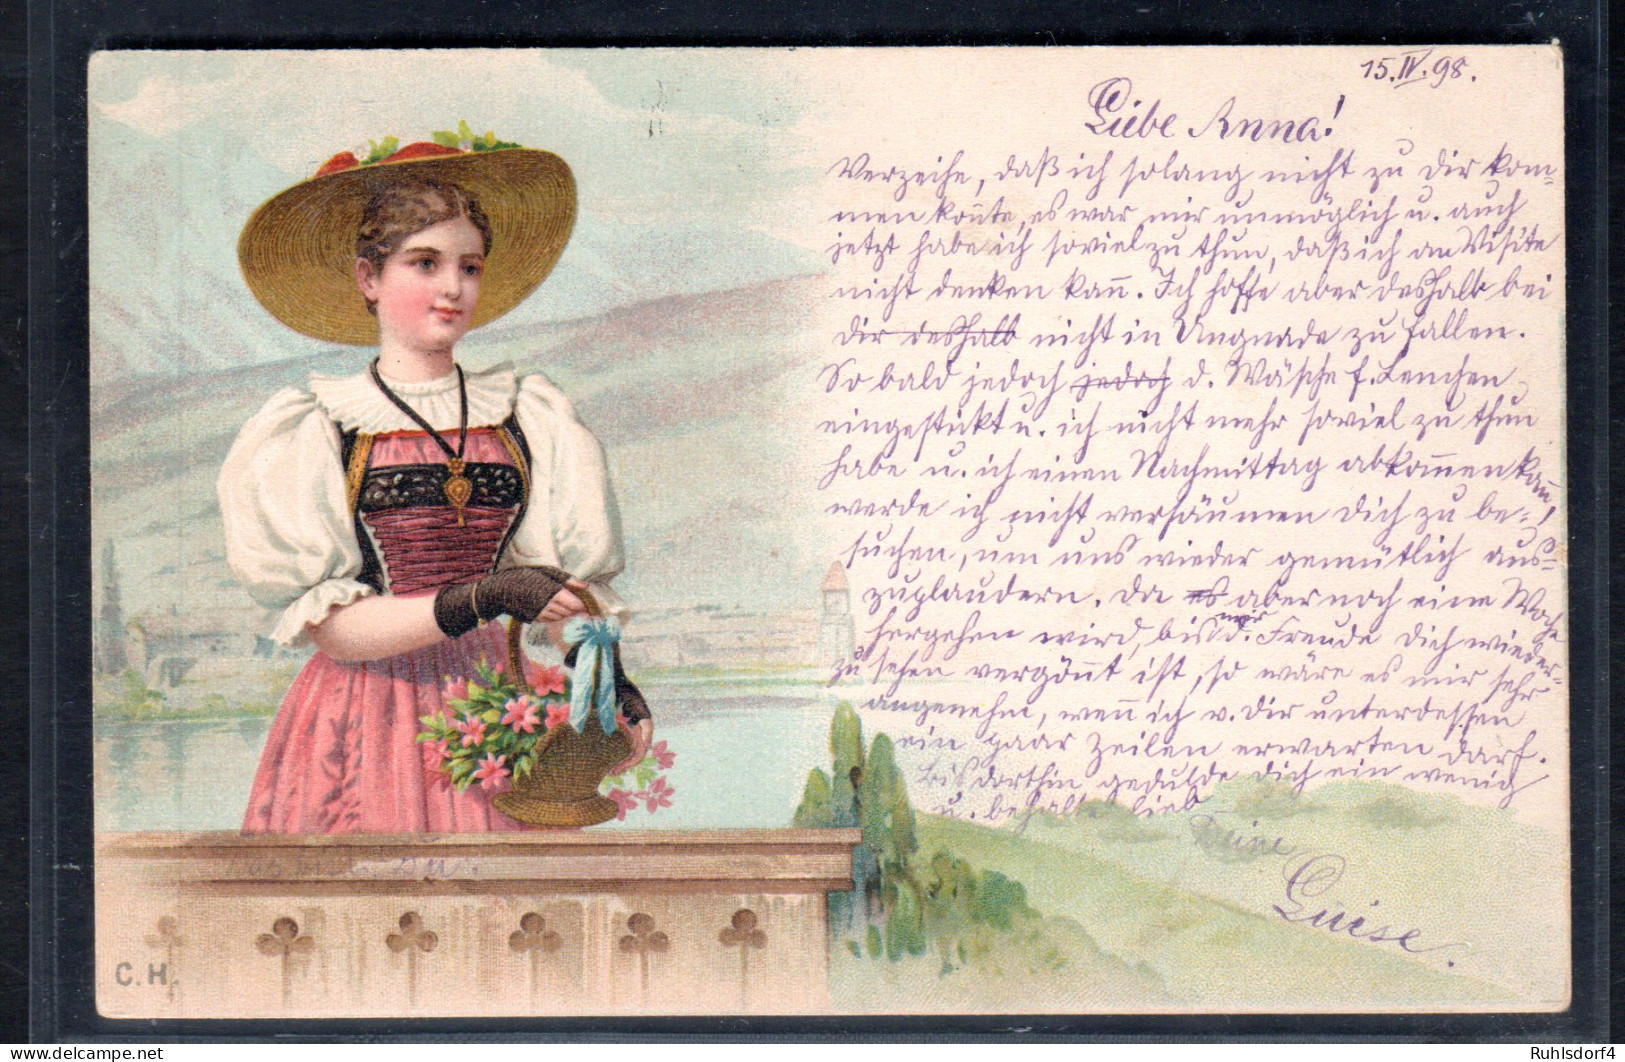 15.IV.98.
Liebe Anna!
Verzeihe, daß ich solang nicht zu Dir kom=
men kon̄te, es war mir unmöglich u. auch
jetzt habe ich soviel zu thun, daß ich an Visite
nicht denken kan̄. Ich hoffe aber deshalb bei
Dir deshalb nicht in Ungnade zu fallen.
So bald jedoch jedoch d. Wäsche f. Lenchen
eingestickt u. ich nicht mehr soviel zu thun
habe u. ich einen Nachmittag abkom̄en kan̄,
werde ich nicht versäumen Dich zu be=
suchen, um uns wieder gemütlich aus=
zuplaudern. Da es aber noch eine Woche
hergehen wird, bis mir d. Freude Dich wieder=
zu sehen vergön̄t ist, so wäre es mir sehr
angenehm, wen̄ ich v. Dir unterdessen
ein paar Zeilen erwarten darf.
Bis dorthin gedulde Dich ein wenig
u. behalte lieb
Deine
Luise.
C.H.
delcampe.net
Ruhlsdorf4